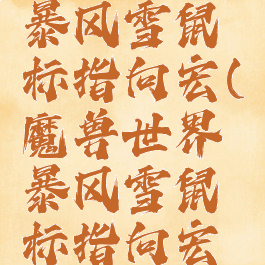 暴风雪鼠
标指向宏(
魔兽世界
暴风雪鼠
标指向宏